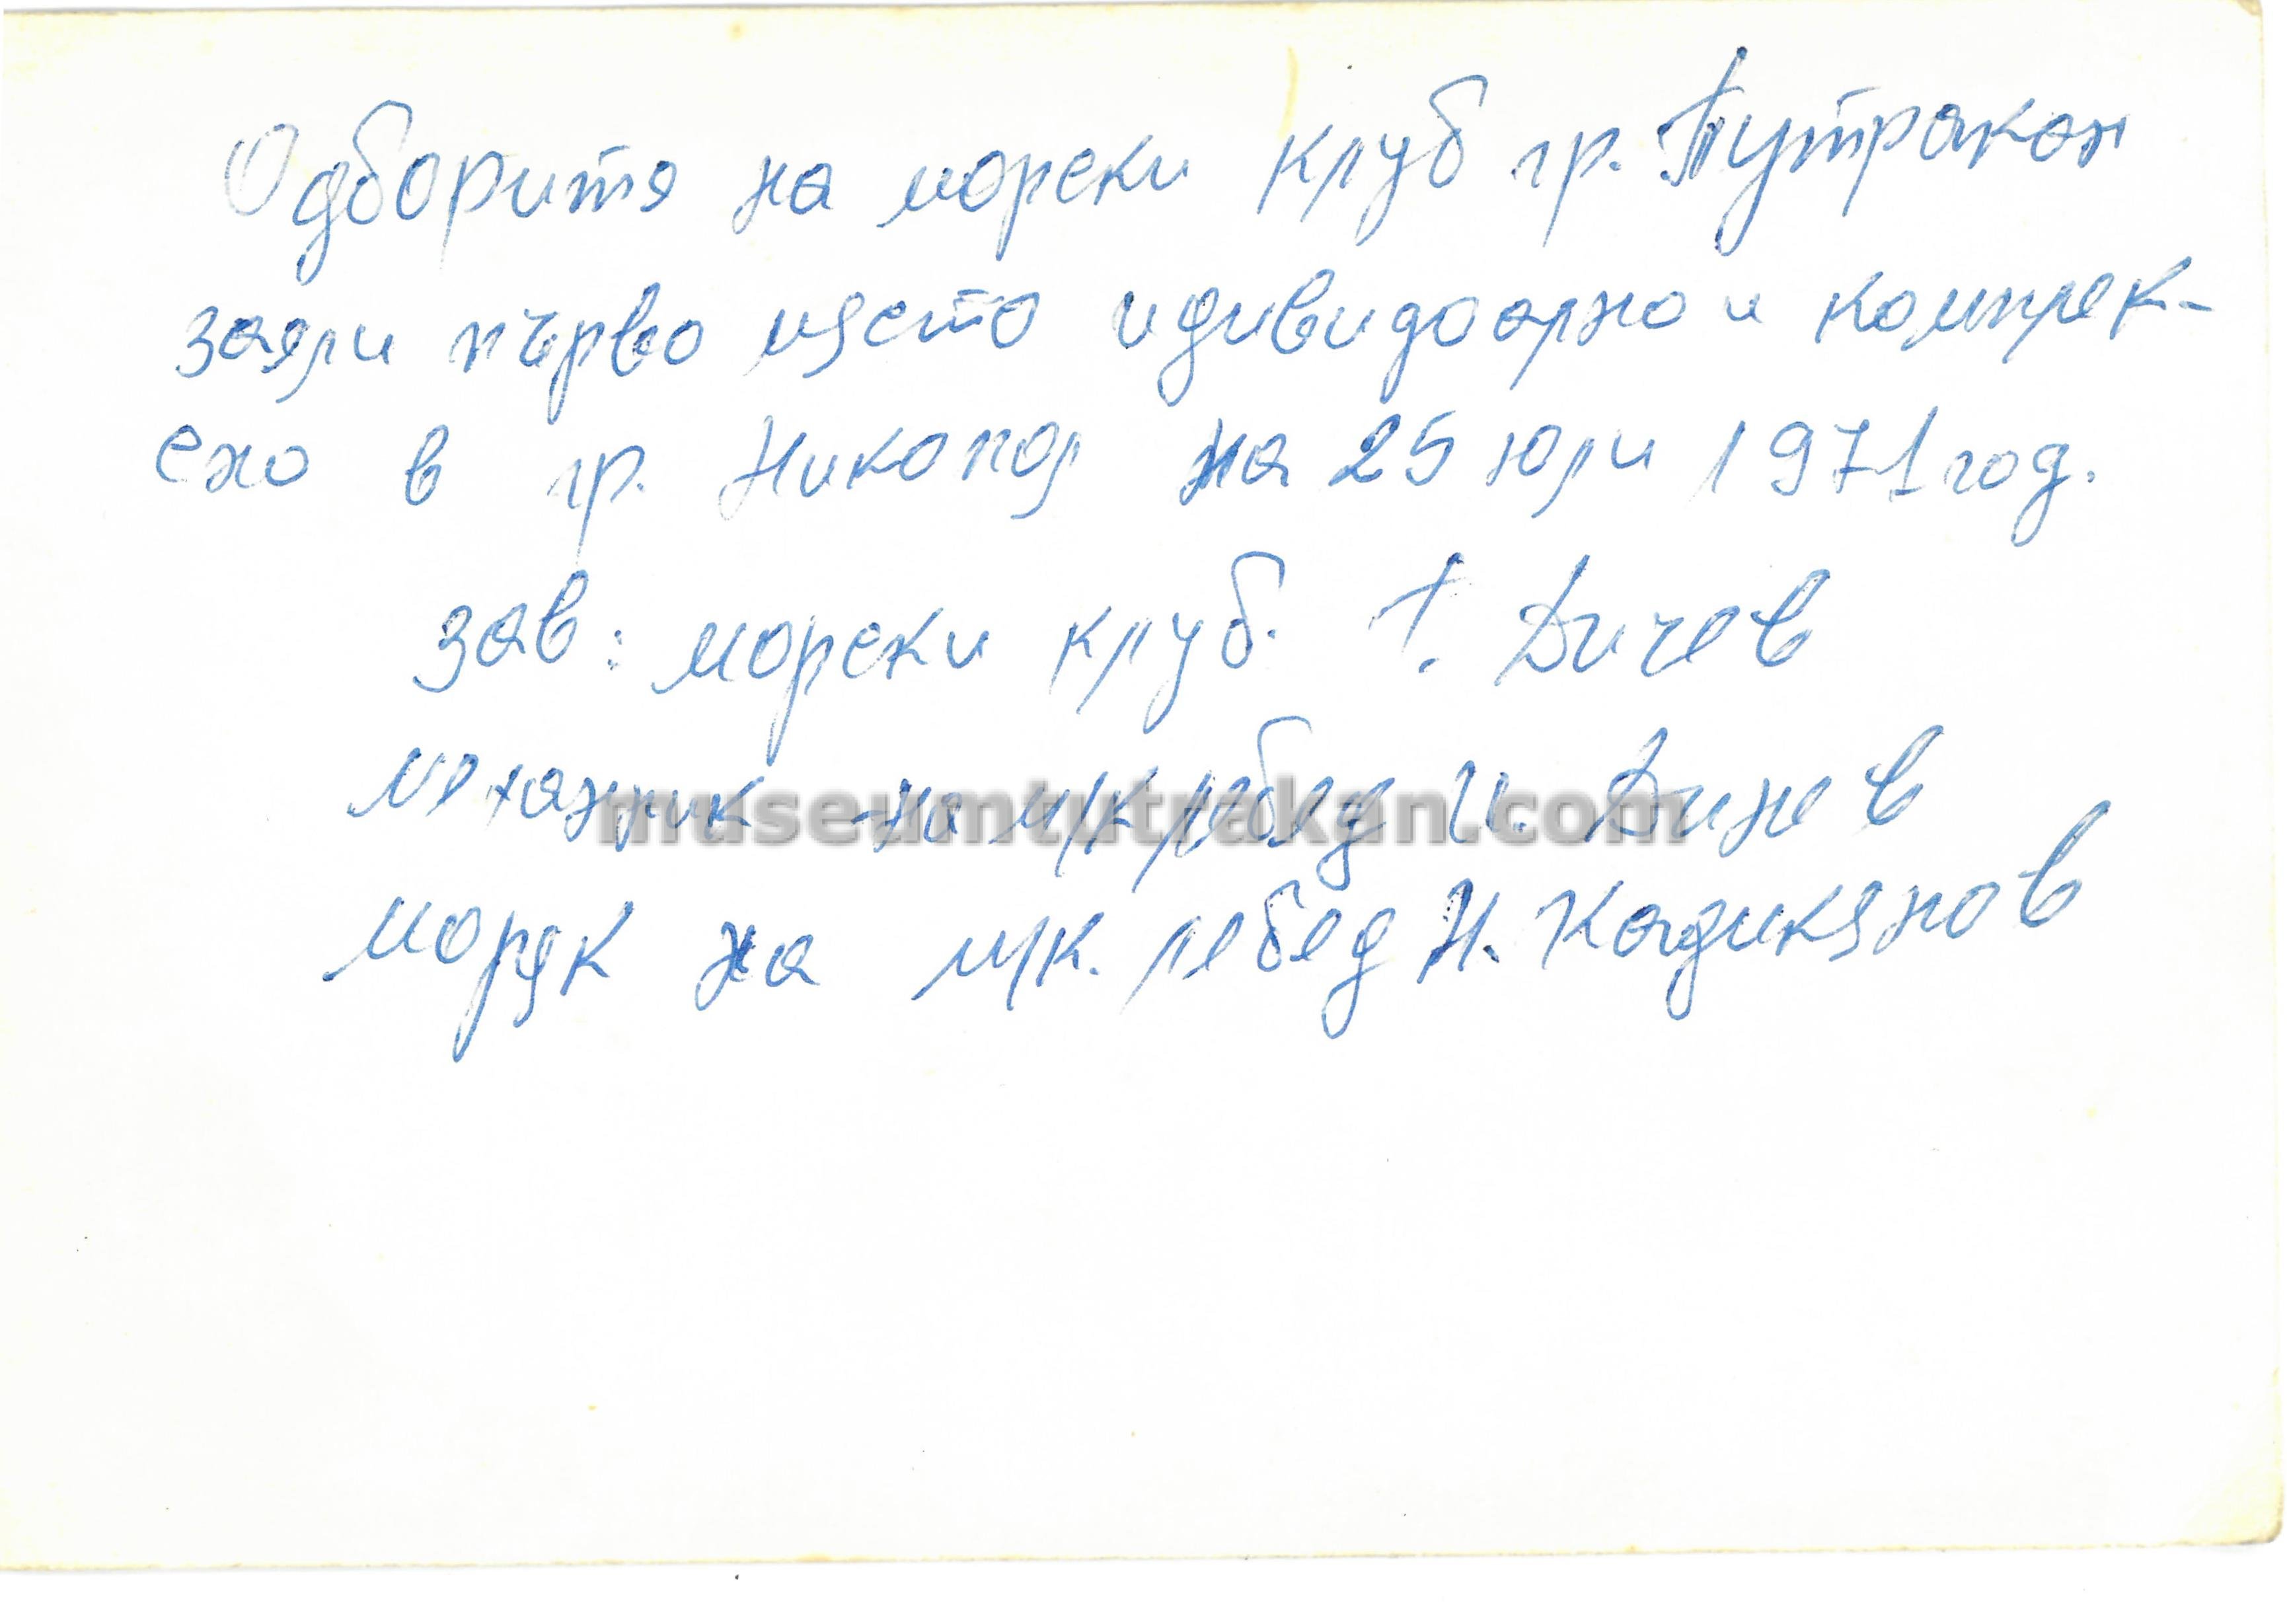 Одборитя на морски клуб гр. Тутракан
заяли първо място идивидоарно и комплек-
сно в гр. Никопол на 25 юли 1971 год.
зав: морски клуб. Т. Дичев
механик на м/к лебед И. Динев
моряк на м/к. лебед Н. Кадикянов
museumtutrakan.com